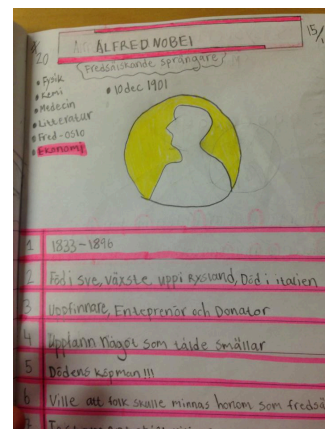 ALFRED NOBEL
15/
20
Fredsälskande sprängare
• Fysik
• Kemi
• Medecin
• Litteratur
• Fred - oslo
• Ekonomi
• 10 dec 1901
1 1833-1896
2 Född i sve, växste upp i Ryssland, Död i italien
3 Uppfinnare, Enteprenör och Donator
4 Uppfann något som tålde smällar
5 Dödens köpman!!!
6 Ville att folk skulle minnas honom som fredsä
7